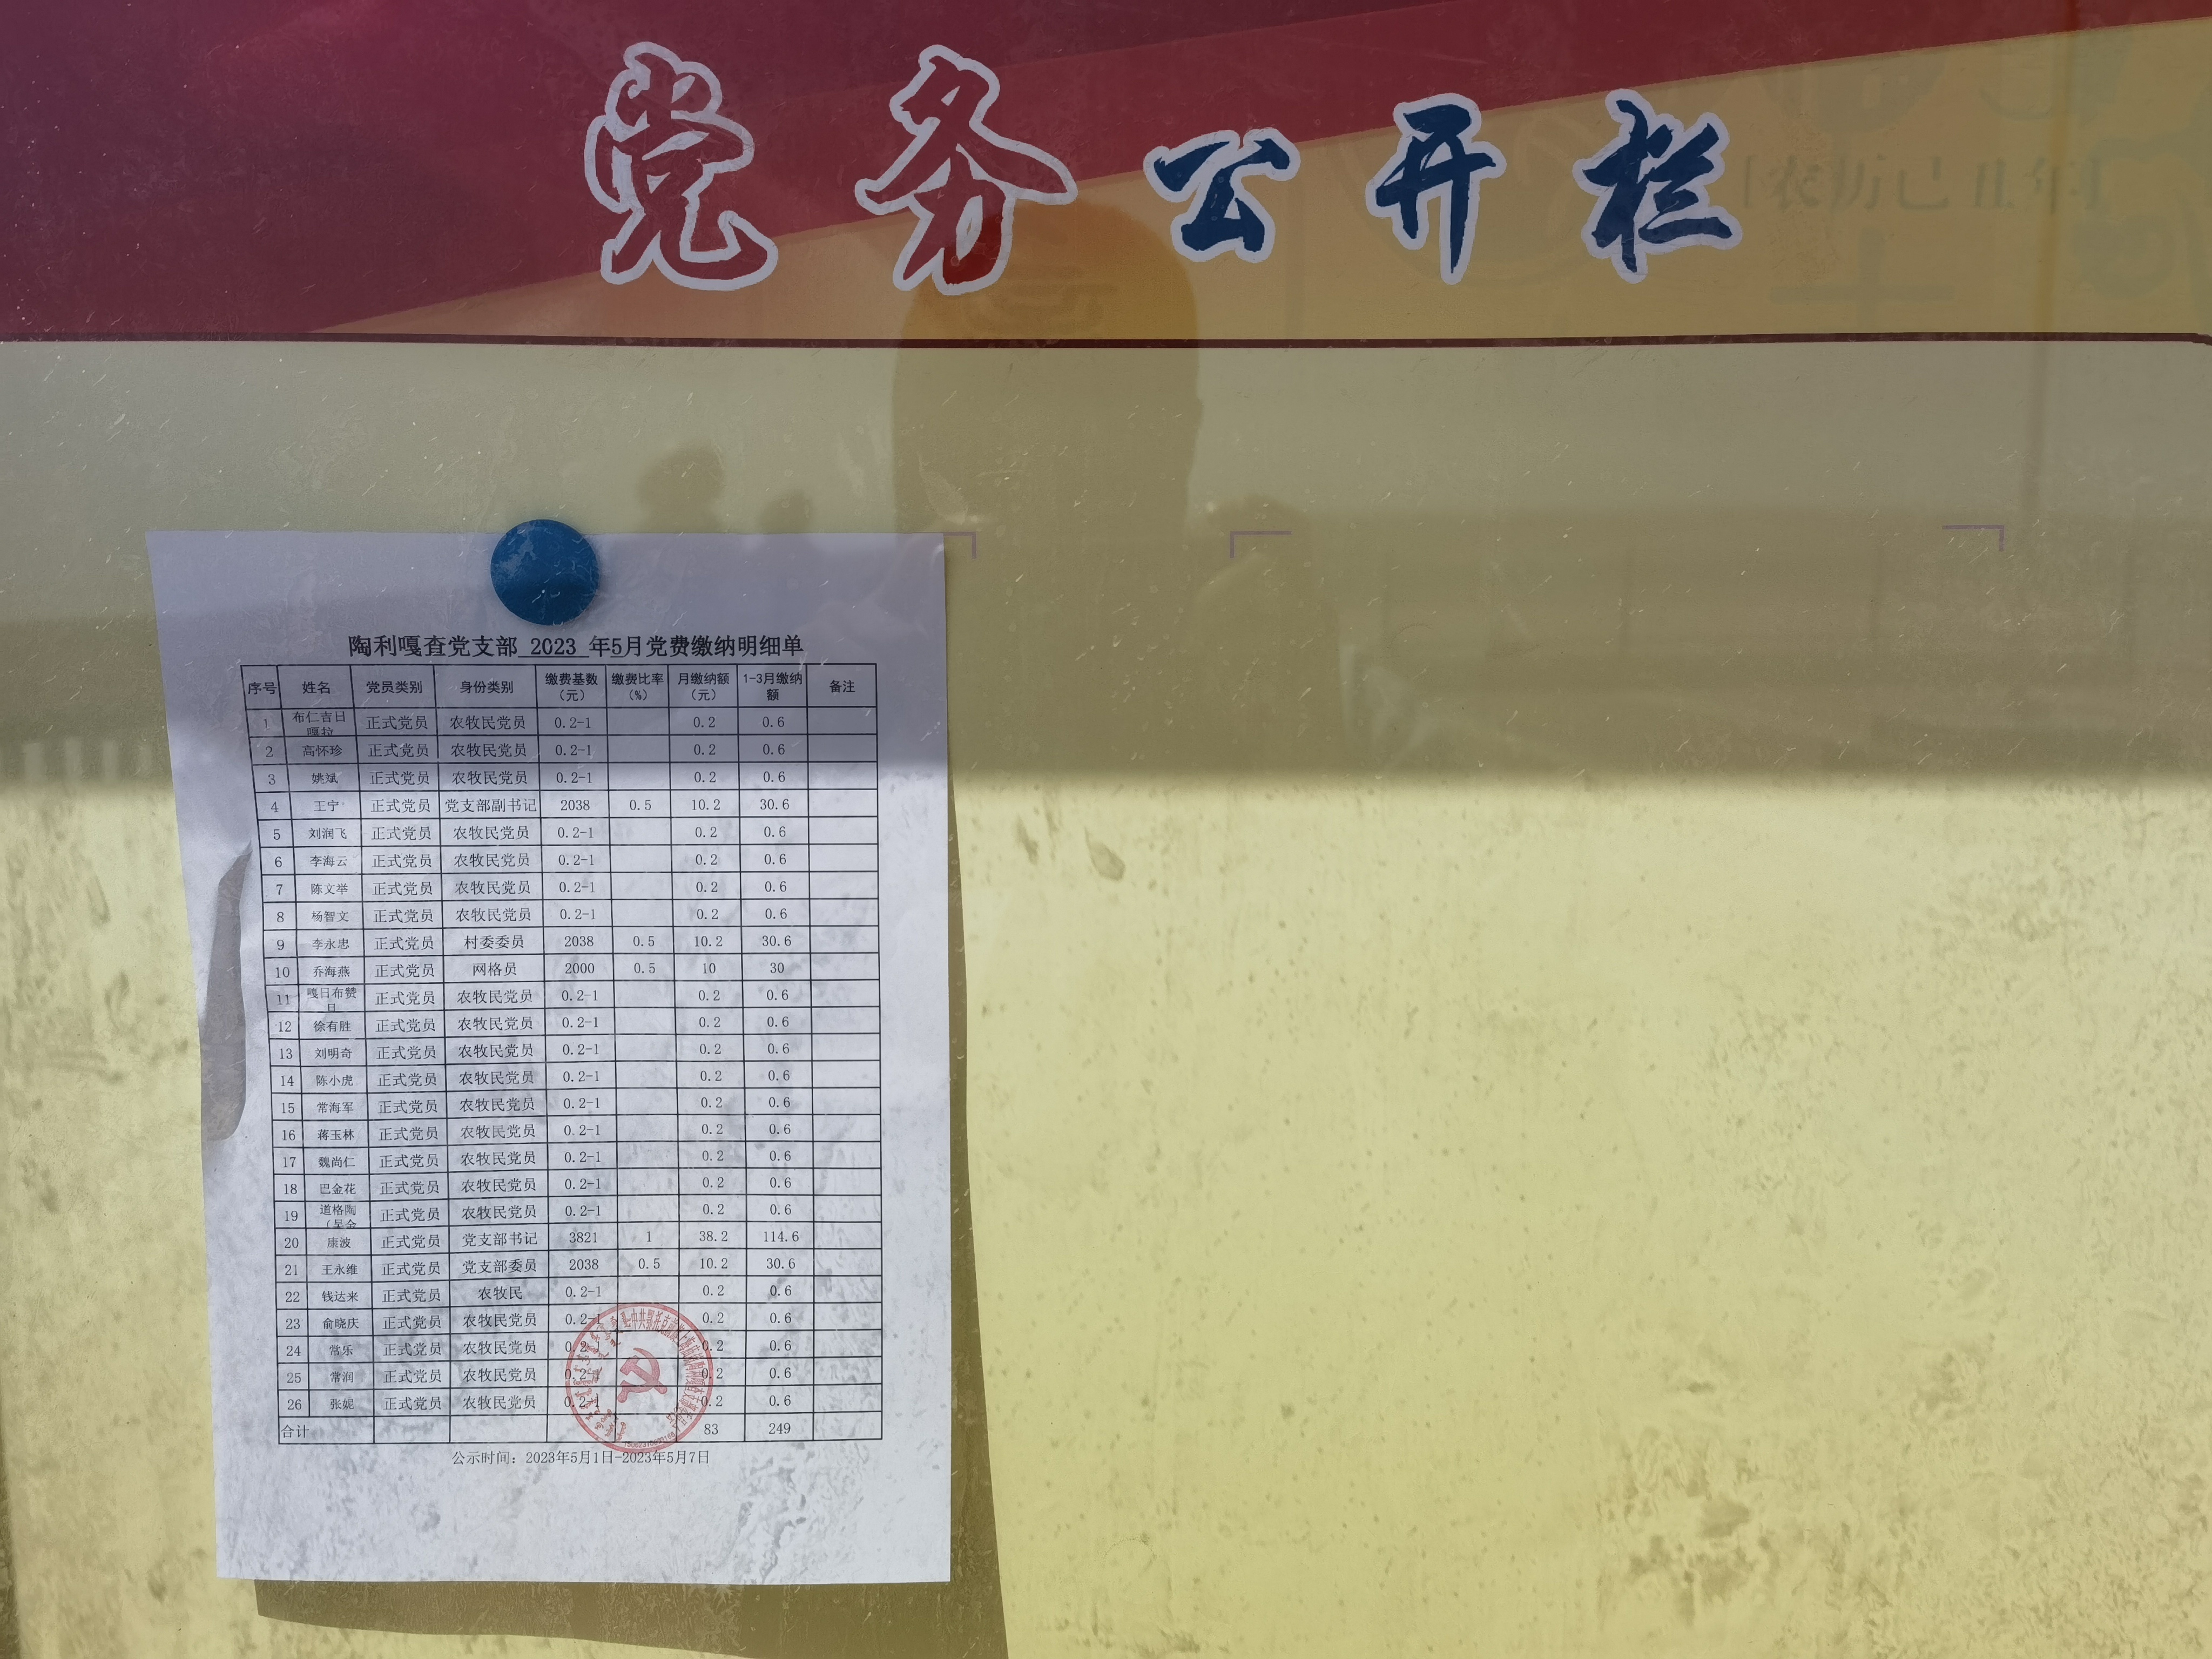 党务公开栏
陶利嘎查党支部 2023 年5月党费缴纳明细单
序号 姓名 党员类别 身份类别 缴费基数（元） 缴费比率（%） 月缴纳额（元） 1-3月缴纳额 备注
1 布仁吉日嘎拉 正式党员 农牧民党员 0.2-1 0.2 0.6
2 高怀珍 正式党员 农牧民党员 0.2-1 0.2 0.6
3 姚斌 正式党员 农牧民党员 0.2-1 0.2 0.6
4 王宁 正式党员 党支部副书记 2038 0.5 10.2 30.6
5 刘润飞 正式党员 农牧民党员 0.2-1 0.2 0.6
6 李海云 正式党员 农牧民党员 0.2-1 0.2 0.6
7 陈文举 正式党员 农牧民党员 0.2-1 0.2 0.6
8 杨智文 正式党员 农牧民党员 0.2-1 0.2 0.6
9 李永忠 正式党员 村委委员 2038 0.5 10.2 30.6
10 乔海燕 正式党员 网格员 2000 0.5 10 30
11 嘎日布赞 正式党员 农牧民党员 0.2-1 0.2 0.6
12 徐有胜 正式党员 农牧民党员 0.2-1 0.2 0.6
13 刘明奇 正式党员 农牧民党员 0.2-1 0.2 0.6
14 陈小虎 正式党员 农牧民党员 0.2-1 0.2 0.6
15 常海军 正式党员 农牧民党员 0.2-1 0.2 0.6
16 蒋玉林 正式党员 农牧民党员 0.2-1 0.2 0.6
17 魏尚仁 正式党员 农牧民党员 0.2-1 0.2 0.6
18 巴金花 正式党员 农牧民党员 0.2-1 0.2 0.6
19 道格陶 正式党员 农牧民党员 0.2-1 0.2 0.6
20 康波 正式党员 党支部书记 3821 1 38.2 114.6
21 王永维 正式党员 党支部委员 2038 0.5 10.2 30.6
22 钱达来 正式党员 农牧民 0.2-1 0.2 0.6
23 俞晓庆 正式党员 农牧民党员 0.2-1 0.2 0.6
24 常乐 正式党员 农牧民党员 0.2-1 0.2 0.6
25 常润 正式党员 农牧民党员 0.2-1 0.2 0.6
26 张妮 正式党员 农牧民党员 0.2-1 0.2 0.6
合计 83 249
公示时间：2023年5月1日-2023年5月7日